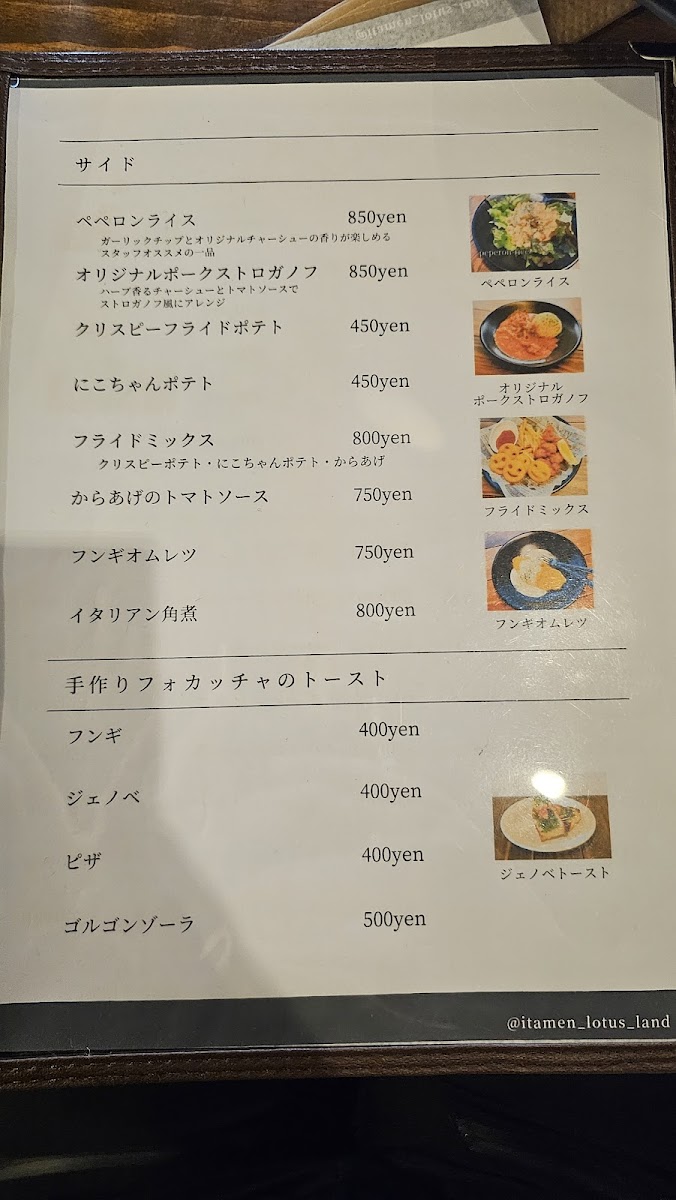 サイド
ペペロンライス 850yen
ガーリックチップとオリジナルチャーシューの香りが楽しめる
スタッフオススメの一品
オリジナルポークストロガノフ 850yen
ハーブ香るチャーシューとトマトソースで
ストロガノフ風にアレンジ
クリスピーフライドポテト 450yen
にこちゃんポテト 450yen
フライドミックス 800yen
クリスピーポテト・にこちゃんポテト・からあげ
からあげのトマトソース 750yen
フンギオムレツ 750yen
イタリアン角煮 800yen
ペペロンライス
オリジナル
ポークストロガノフ
フライドミックス
フンギオムレツ
手作りフォカッチャのトースト
フンギ 400yen
ジェノベ 400yen
ピザ 400yen
ゴルゴンゾーラ 500yen
ジェノベトースト
@itamen_lotus_land